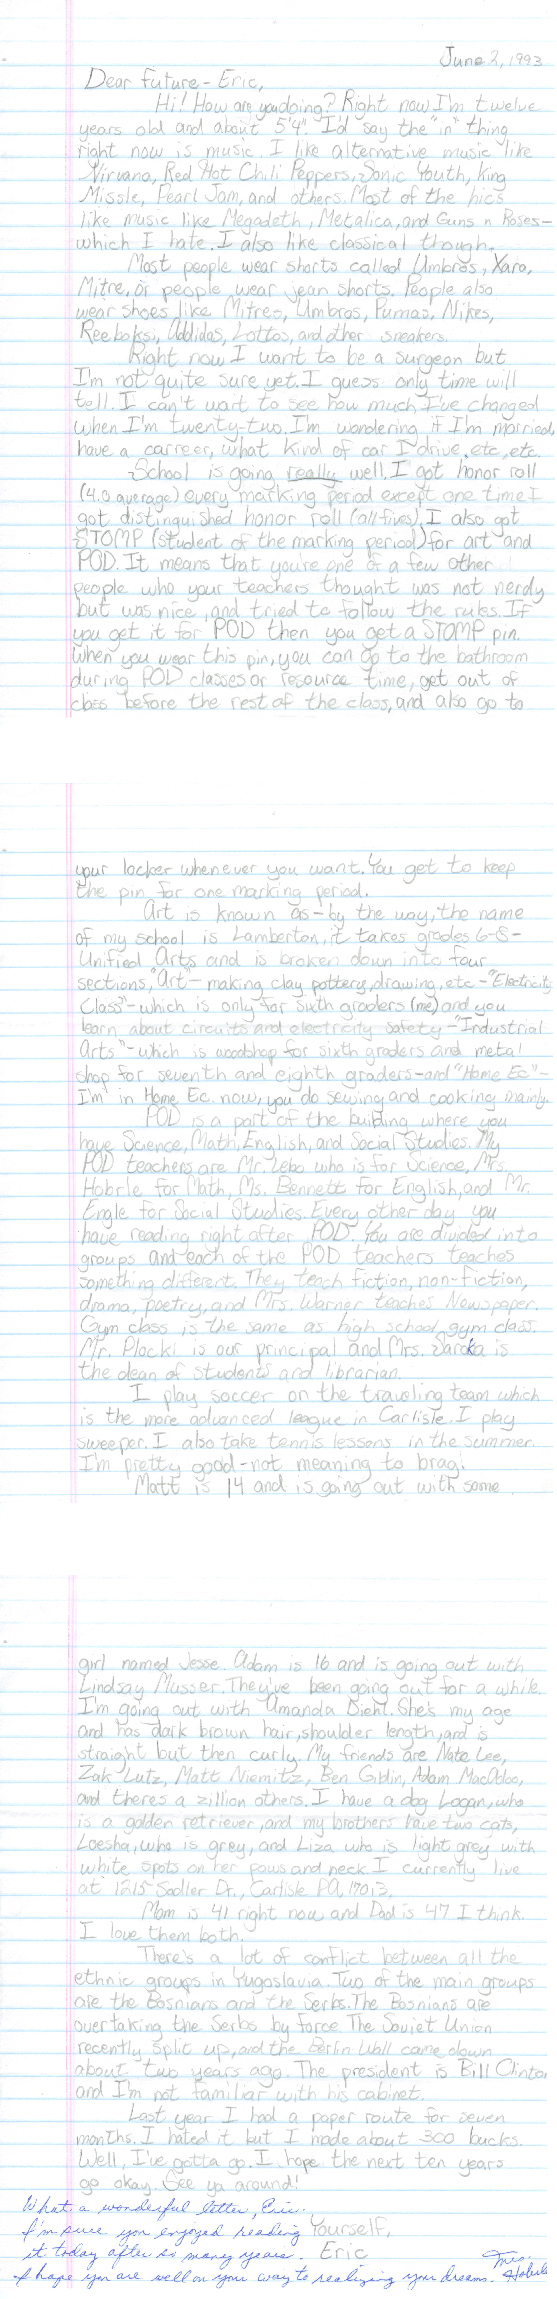 June 2, 1993
Dear Future-Eric,
Hi! How are you doing? Right now I'm twelve
years old and about 5'4". I'd say the "in" thing
right now is music. I like alternative music like
Nirvana, Red Hot Chili Peppers, Sonic Youth, King
Missle, Pearl Jam, and others. Most of the hics
like music like Megadeth, Metalica, and Guns n Roses-
which I hate. I also like classical though.
Most people wear shorts called Umbros, Xara,
Mitre, or people wear jean shorts. People also
wear shoes like Mitres, Umbros, Pumas, Nikes,
Reeboks, Addidas, Lottos, and other sneakers.
Right now I want to be a surgeon but
I'm not quite sure yet. I guess only time will
tell. I can't wait to see how much I've changed
when I'm twenty-two. I'm wondering if I'm married,
have a carreer, what kind of car I drive, etc, etc.
School is going really well. I got honor roll
(4.0 average) every marking period except one time I
got distinguished honor roll (all fives). I also got
STOMP (student of the marking period) for art and
POD. It means that you're one of a few other
people who your teachers thought was not nerdy
but was nice, and tried to follow the rules. If
you get it for POD then you get a STOMP pin.
When you wear this pin, you can go to the bathroom
during POD classes or resource time, get out of
class before the rest of the class, and also go to
your locker whenever you want. You get to keep
the pin for one marking period.
Art is known as-by the way, the name
of my school is Lamberton, it takes grades 6-8-
Unified Arts and is broken down into four
sections, "Art"-making clay pottery, drawing, etc-"Electricity
Class"-which is only for sixth graders (me) and you
learn about circuits and electricity safety-"Industrial
Arts"-which is woodshop for sixth graders and metal
shop for seventh and eighth graders-and "Home Ec"-
I'm in Home Ec. now, you do sewing and cooking mainly.
POD is a part of the building where you
have Science, Math, English, and Social Studies. My
POD teachers are Mr. Lebo who is for Science, Mrs.
Hobrle for Math, Ms. Bennett for English, and Mr.
Engle for Social Studies. Every other day you
have reading right after POD. You are divided into
groups and each of the POD teachers teaches
something different. They teach fiction, non-fiction,
drama, poetry, and Mrs. Warner teaches Newspaper.
Gym class is the same as high school gym class.
Mr. Plocki is our principal and Mrs. Zaroka is
the dean of students and librarian.
I play soccer on the traveling team which
is the more advanced league in Carlisle. I play
sweeper. I also take tennis lessons in the summer.
I'm pretty good-not meaning to brag!
Matt is 14 and is going out with some
girl named Jesse. Adam is 16 and is going out with
Lindsay Musser. They've been going out for a while.
I'm going out with Amanda Diehl. She's my age
and has dark brown hair, shoulder length, and is
straight but then curly. My friends are Nate Lee,
Zak Lutz, Matt Niemitz, Ben Giblin, Adam
and theres a zillion others. I have a dog Logan, who
is a golden retriever, and my brothers have two cats,
Loesha, who is grey, and Liza who is light grey with
white spots on her paws and neck. I currently live
at 1215 Sadler Dr., Carlisle PA, 17013.
Mom is 41 right now and Dad is 47 I think.
I love them both.
There's a lot of conflict between all the
ethnic groups in Yugoslavia. Two of the main groups
are the Bosnians and the Serbs. The Bosnians are
overtaking the Serbs by force. The Soviet Union
recently split up, and the Berlin Wall came down
about two years ago. The president is Bill Clinton
and I'm not familiar with his cabinet.
Last year I had a paper route for seven
months. I hated it but I made about 300 bucks.
Well, I've gotta go. I hope the next ten years
go okay. See ya around!
Yourself,
Eric
What a wonderful letter, Eric.
I'm sure you enjoyed reading
it today after so many years.
I hope you are well on your way to realizing your dreams. Mrs. Hobrle